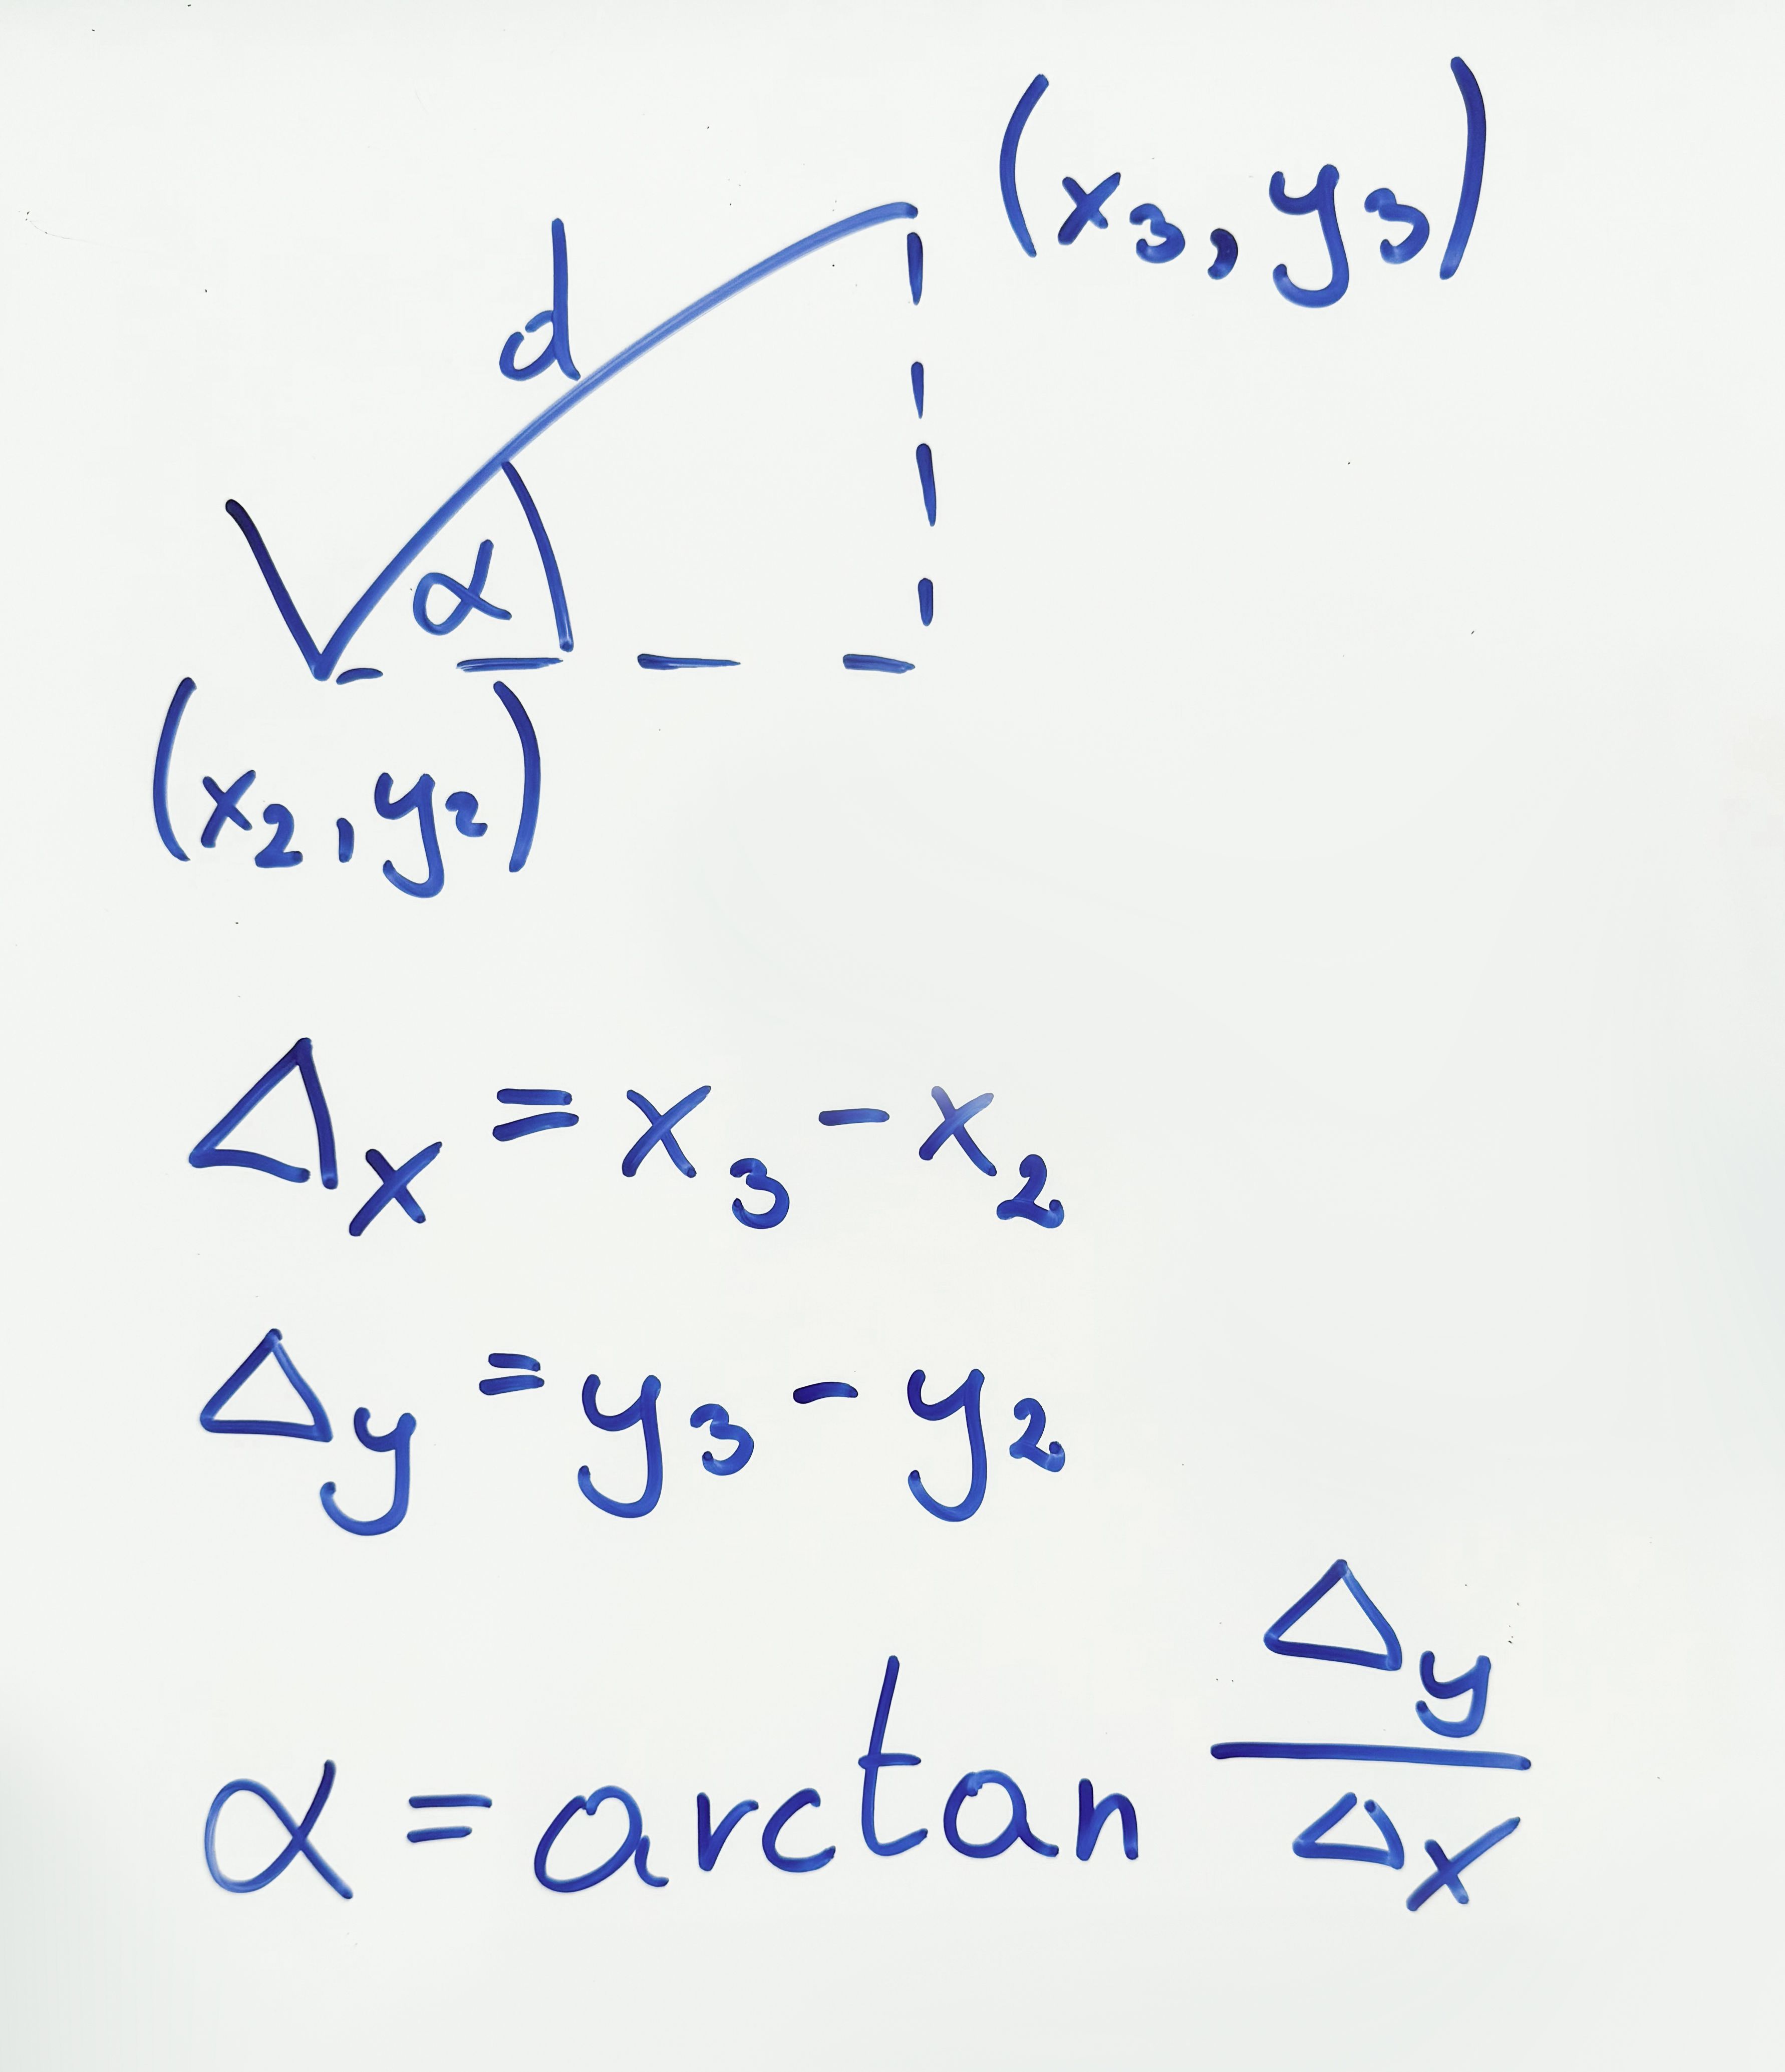 (x₃, y₃)
d
α
(x₂, y₂)
Δx = x₃ - x₂
Δy = y₃ - y₂
α = arctan Δy / Δx